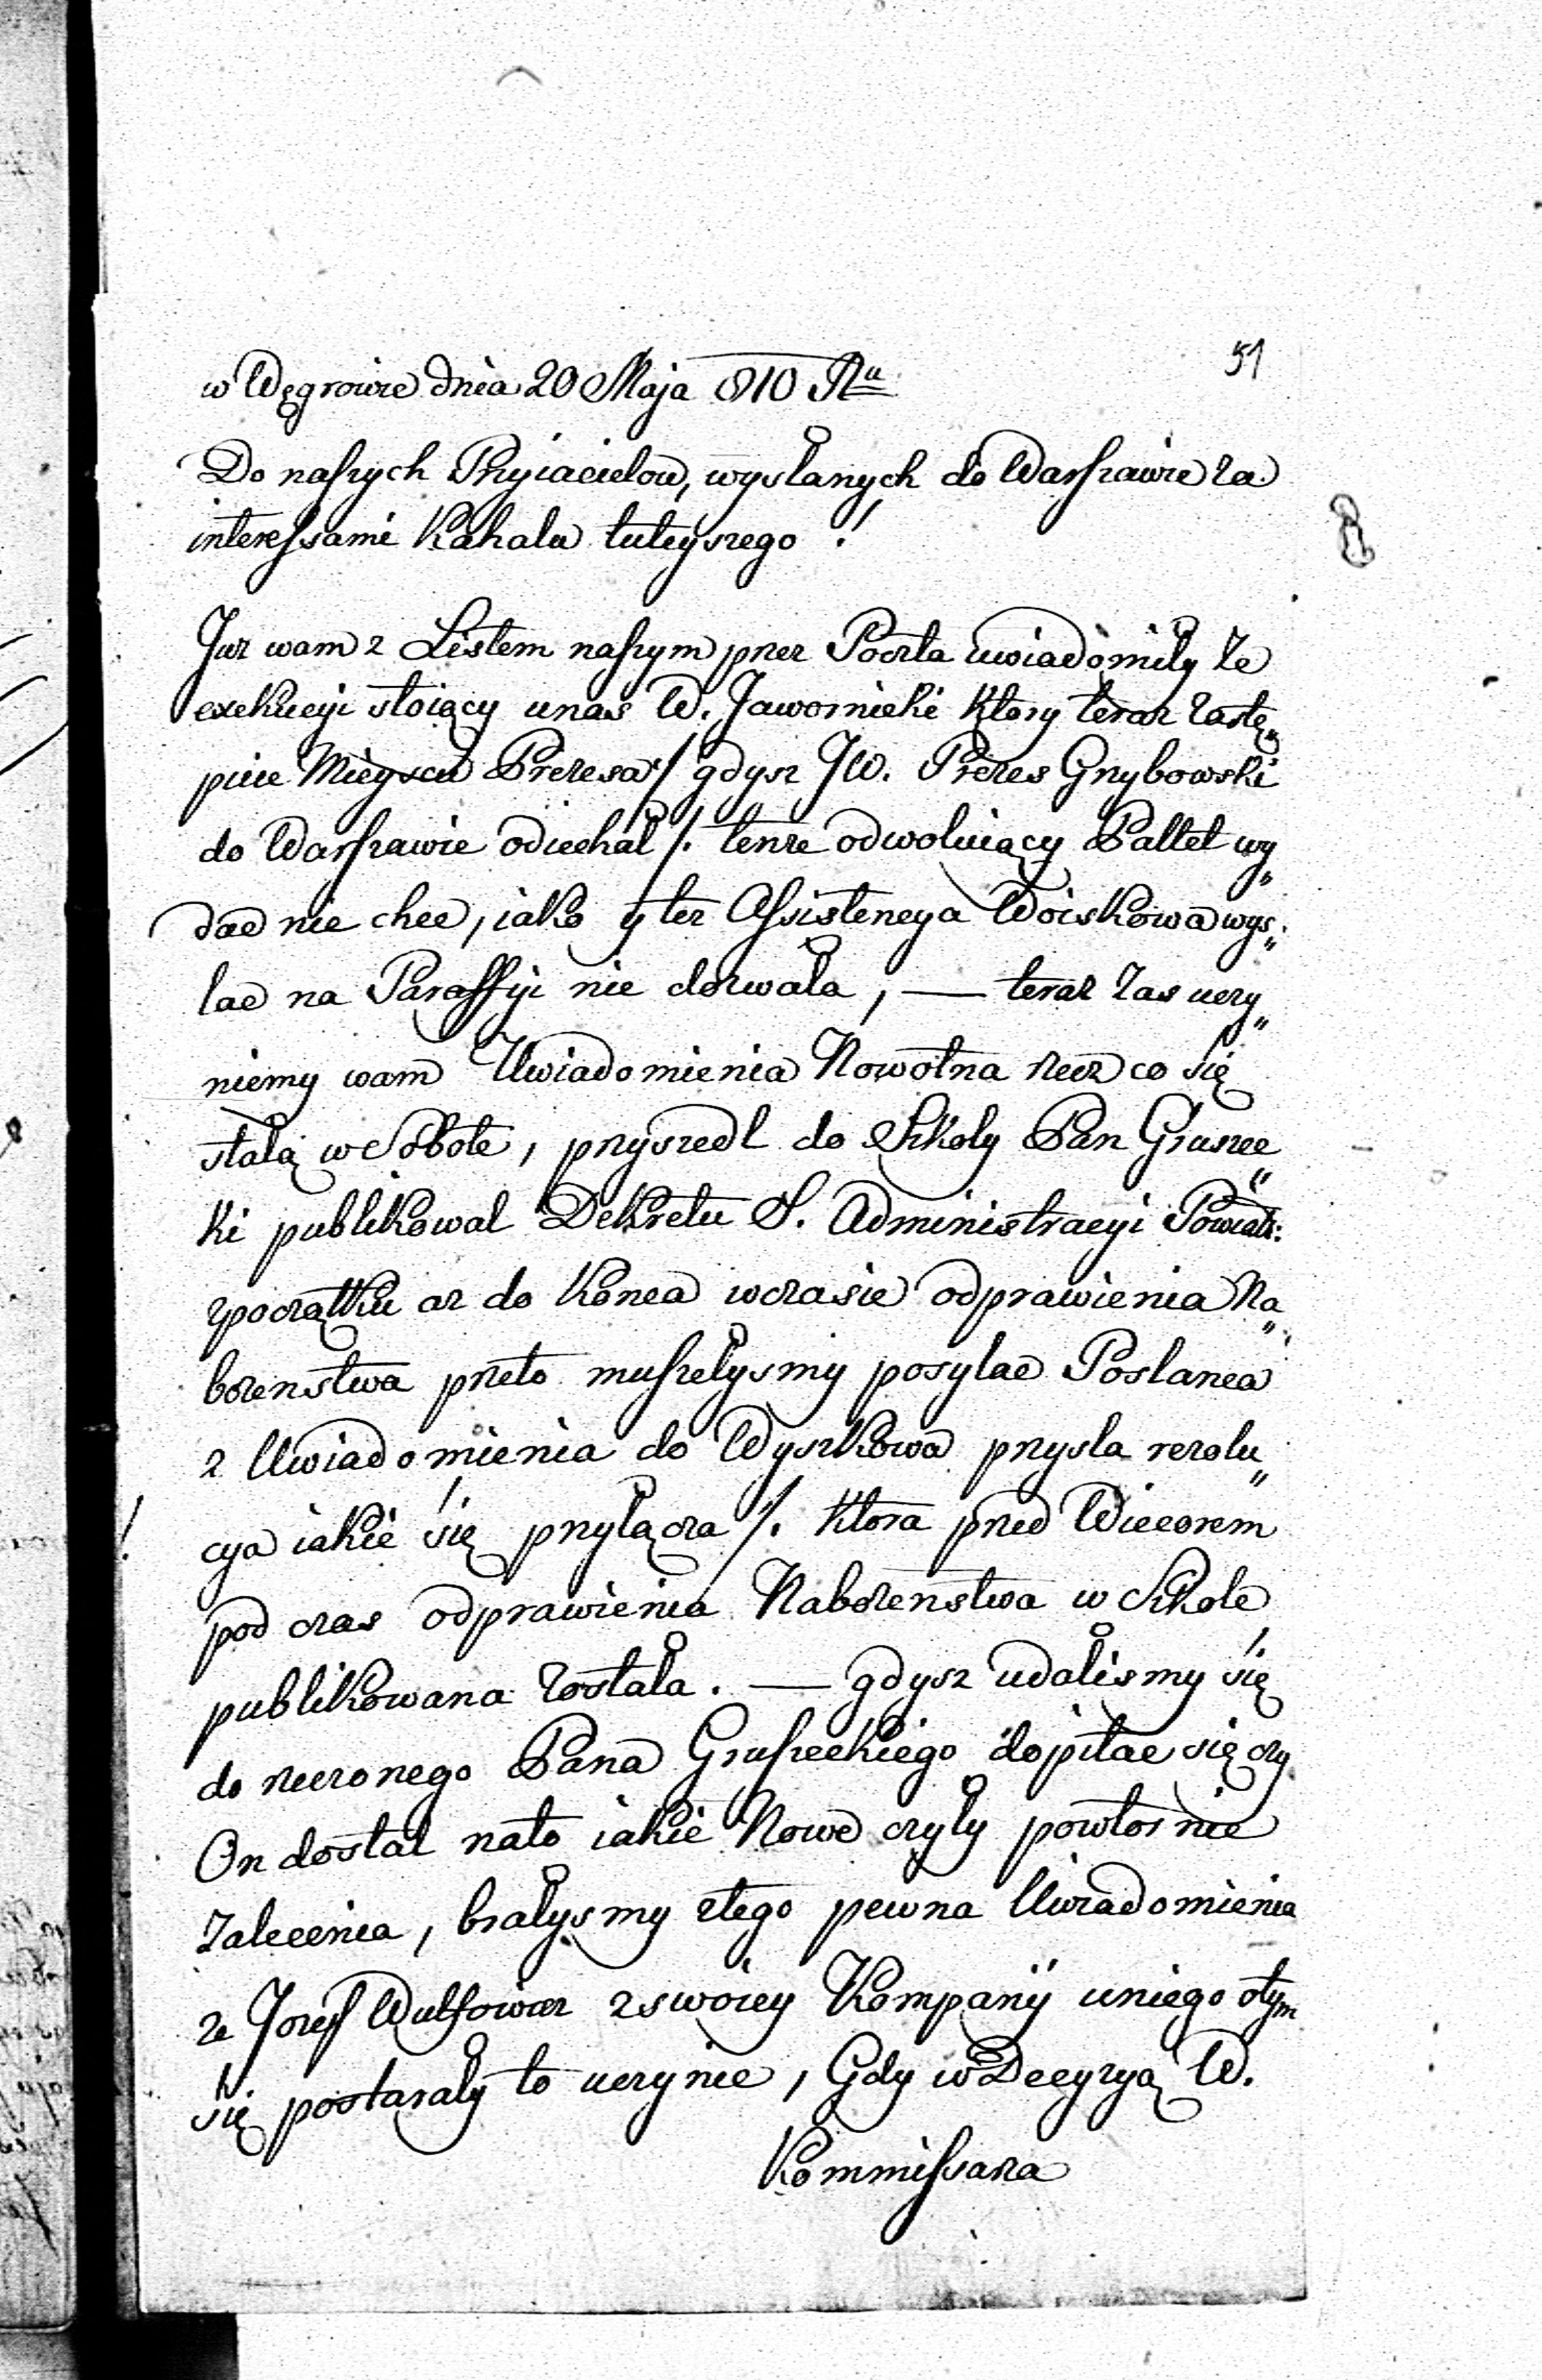 51
w Węgrowie dnia 20 Maja 810 Ru
Do naszych Przyiacielow, wysłanych do Warszawie za
interessami Kahala tuteyszego !
Juz wam z Listem naszym przez Poczta uwiadomiły ze
exekucyi stoiący unas W. Jawornicki ktory teraz zastę„
puie Mieyscu Prezesa /. gdysz JW. Prezes Grzybowski
do Warszawie odiechał /. tenze odwoluiący Pallet wy„
dac nie chce, iako y tez Assistencya Woiskowa wys„
lac na Paraffyi nie dozwała, — teraz zas uczy„
niemy wam Uwiadomienia Nowotna rzecz co się
stalą w Sobote, przyszedl do Szkoly Pan Grusze„
cki publikowal Dekretu S. Administracyi Powiat:
zpocrątku az do Konca wczasie odprawienia Na„
bozenstwa przeto muszełysmy posylac Poslanca
z Uwiadomienia do Wyszkowa przysla rezolu„
cya iakie się przyłącza /. ktora przed Wieczorem
pod czas odprawienia Nabozenstwa w Szkole
publikowana została. — gdysz udaliśmy się
do rzeczonego Pana Gruszeckiego dopitac się czy
On dostal nato iakie Nowe czyły powtornie
Zalecenia, brałysmy ztego pewna Uwiadomienia
ze Jozef Wulfowicz zswoiey Kompanÿ uniego otym
się postarały to uczynie, Gdy w Decyzyą W.
Kommissarza